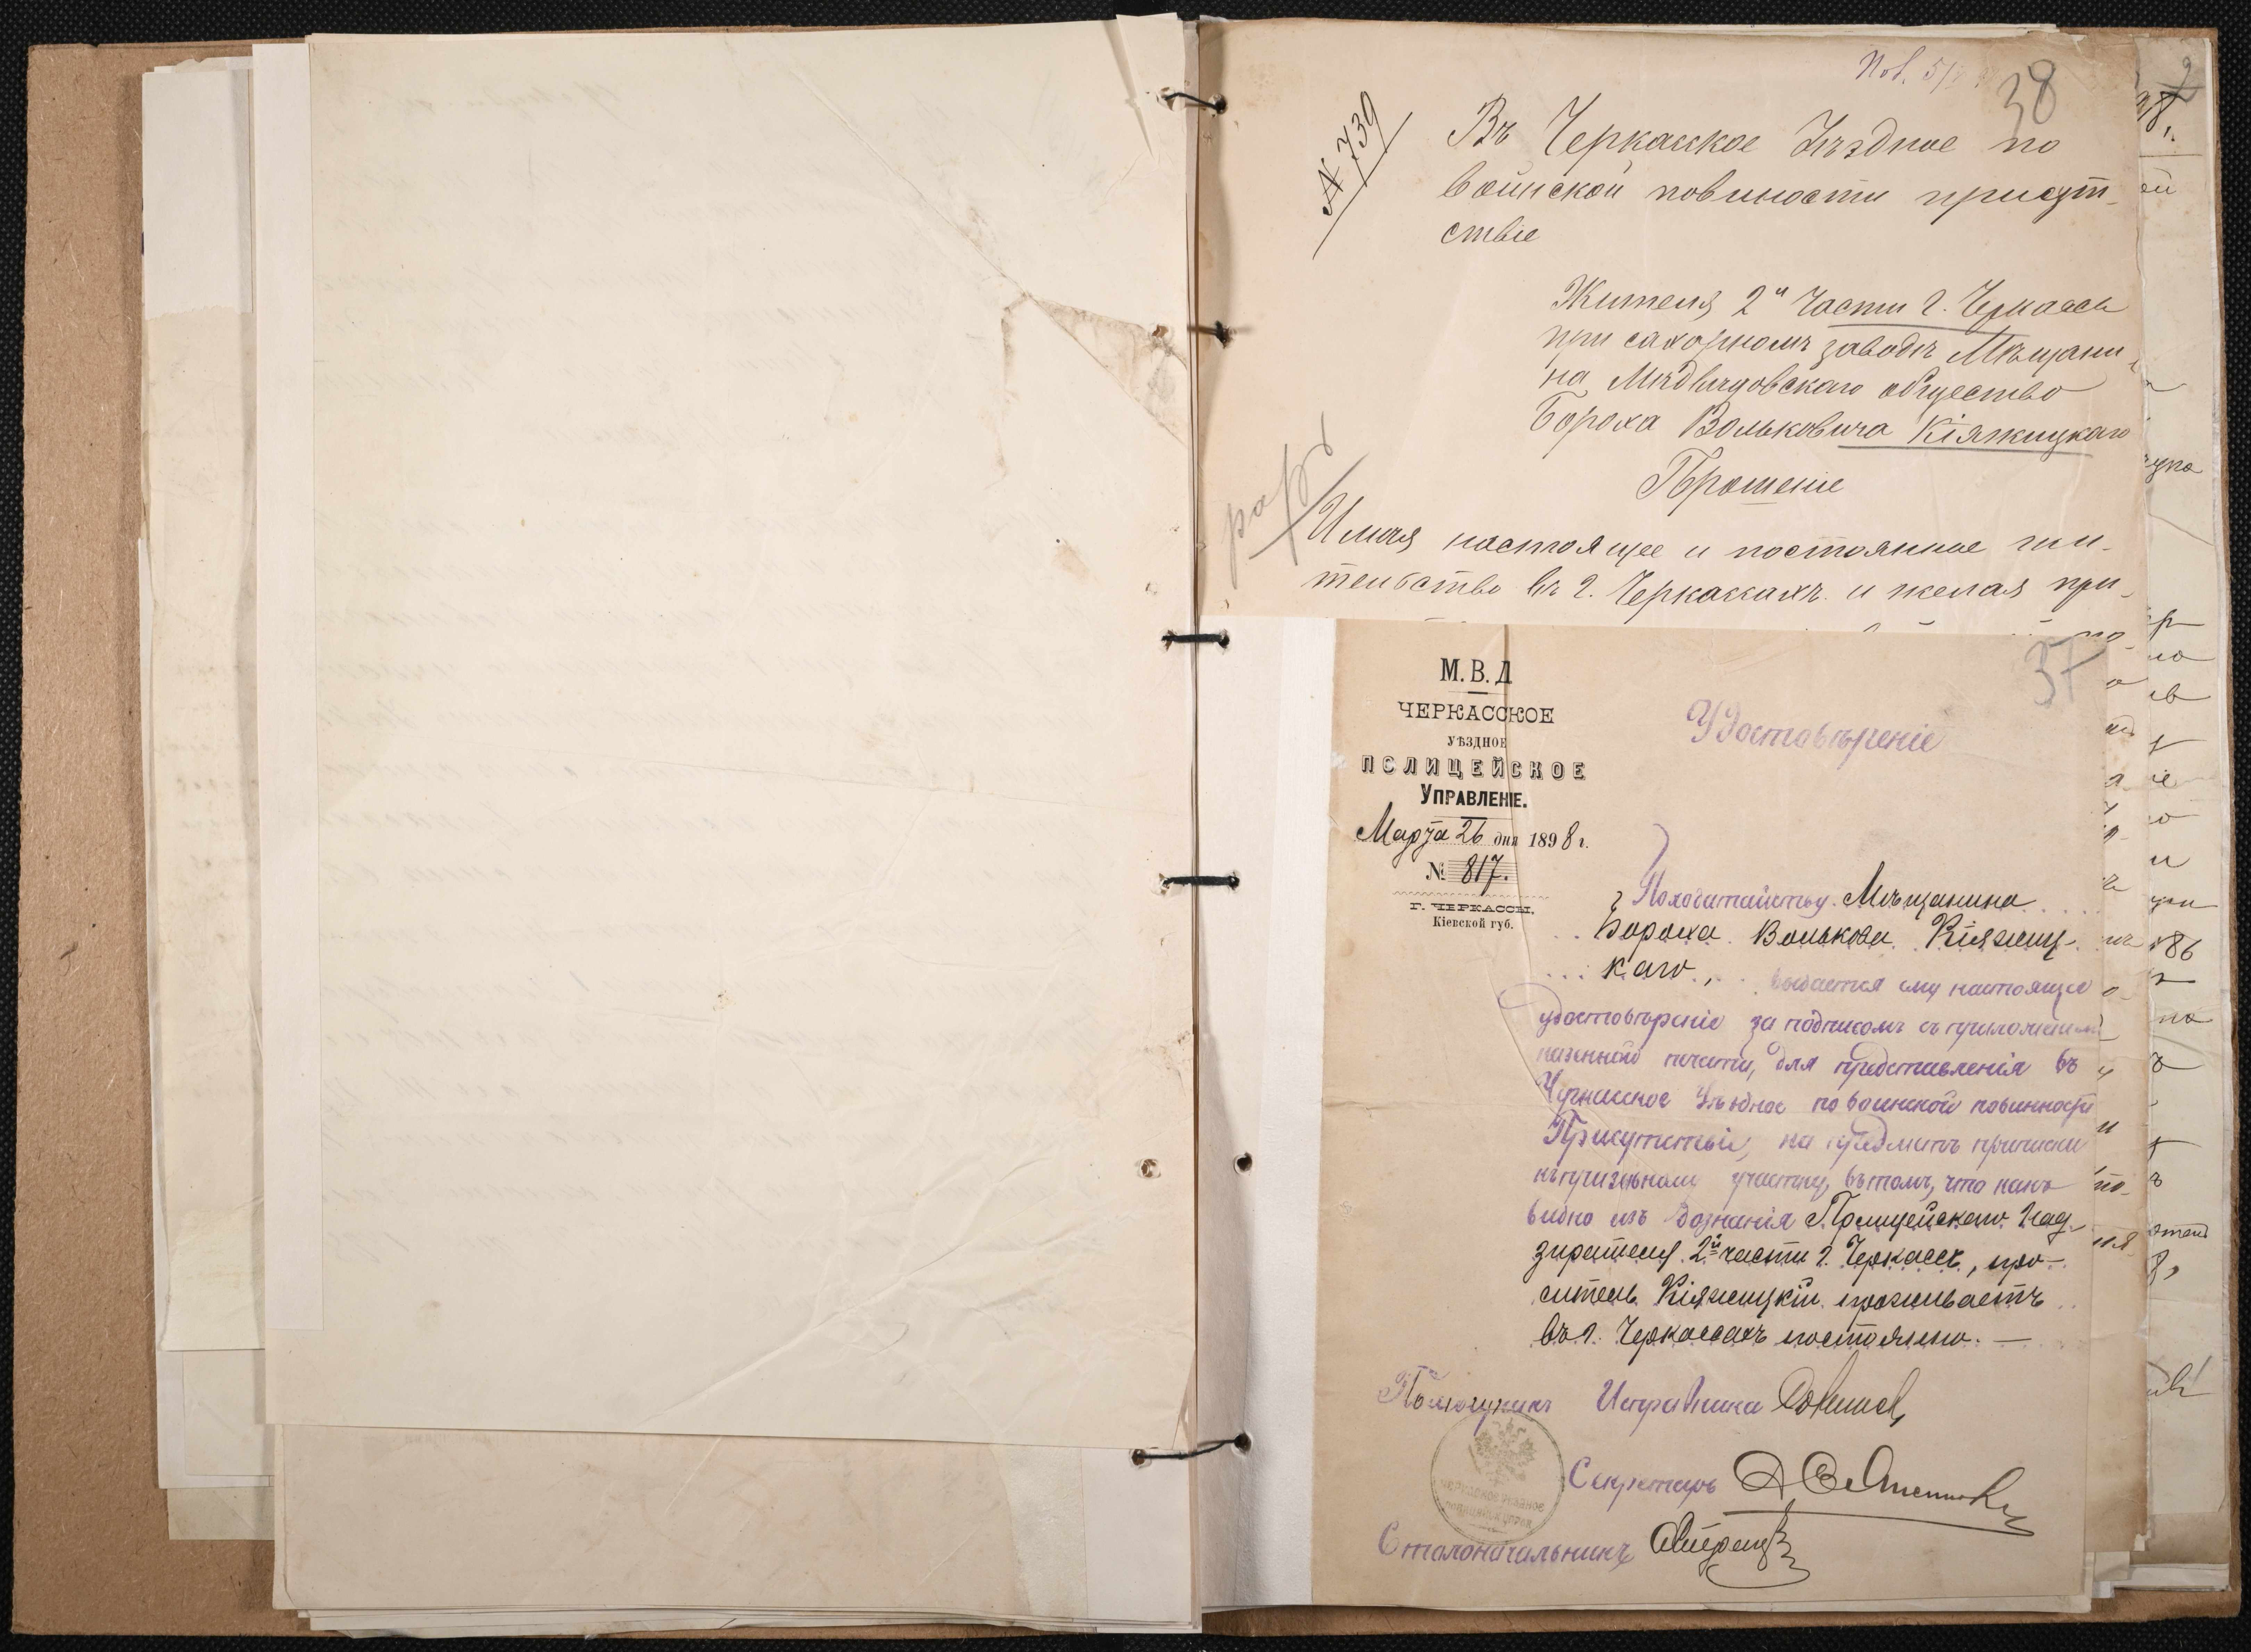 38
№ 739
Въ Черкасское Уѣздное по
воинской повиности присут-
ствіе
Жителя 2й Части г. Черкассъ
при сахорномъ заводѣ Мѣщани-
на Мѣдвѣдовскаго общество
Бороха Вольковича Кіяжицкаго
Прошеніе
Имѣя настоящее и постоянное жи-
тельство въ г. Черкассахъ и желая при-
37
М. В. Д
ЧЕРКАССКОЕ
УѢЗДНОЕ
ПОЛИЦЕЙСКОЕ
УПРАВЛЕНІЕ.
Марта 26 дня 1898 г.
№ 817.
Г. ЧЕРКАССЫ.
Кіевской губ.
Удостовѣреніе
По ходатайству Мѣщанина
Бороха Волькова Кіяжиц-
каго, выдается ему настоящее
удостовѣреніе за подписомъ съ приложеніемъ
казенной печати, для представленія въ
Черкасское Уѣздное по воинской повинности
Присутствіе, на предметъ приписки
къ призывному участку, въ томъ, что какъ
видно изъ дознанія Полицейскаго Над-
зирателя 2й части г. Черкассъ, про-
ситель Кіяжицкій проживаетъ
въ г. Черкассахъ постоянно. —
Помощникъ Исправника
Секретарь
Столоначальникъ